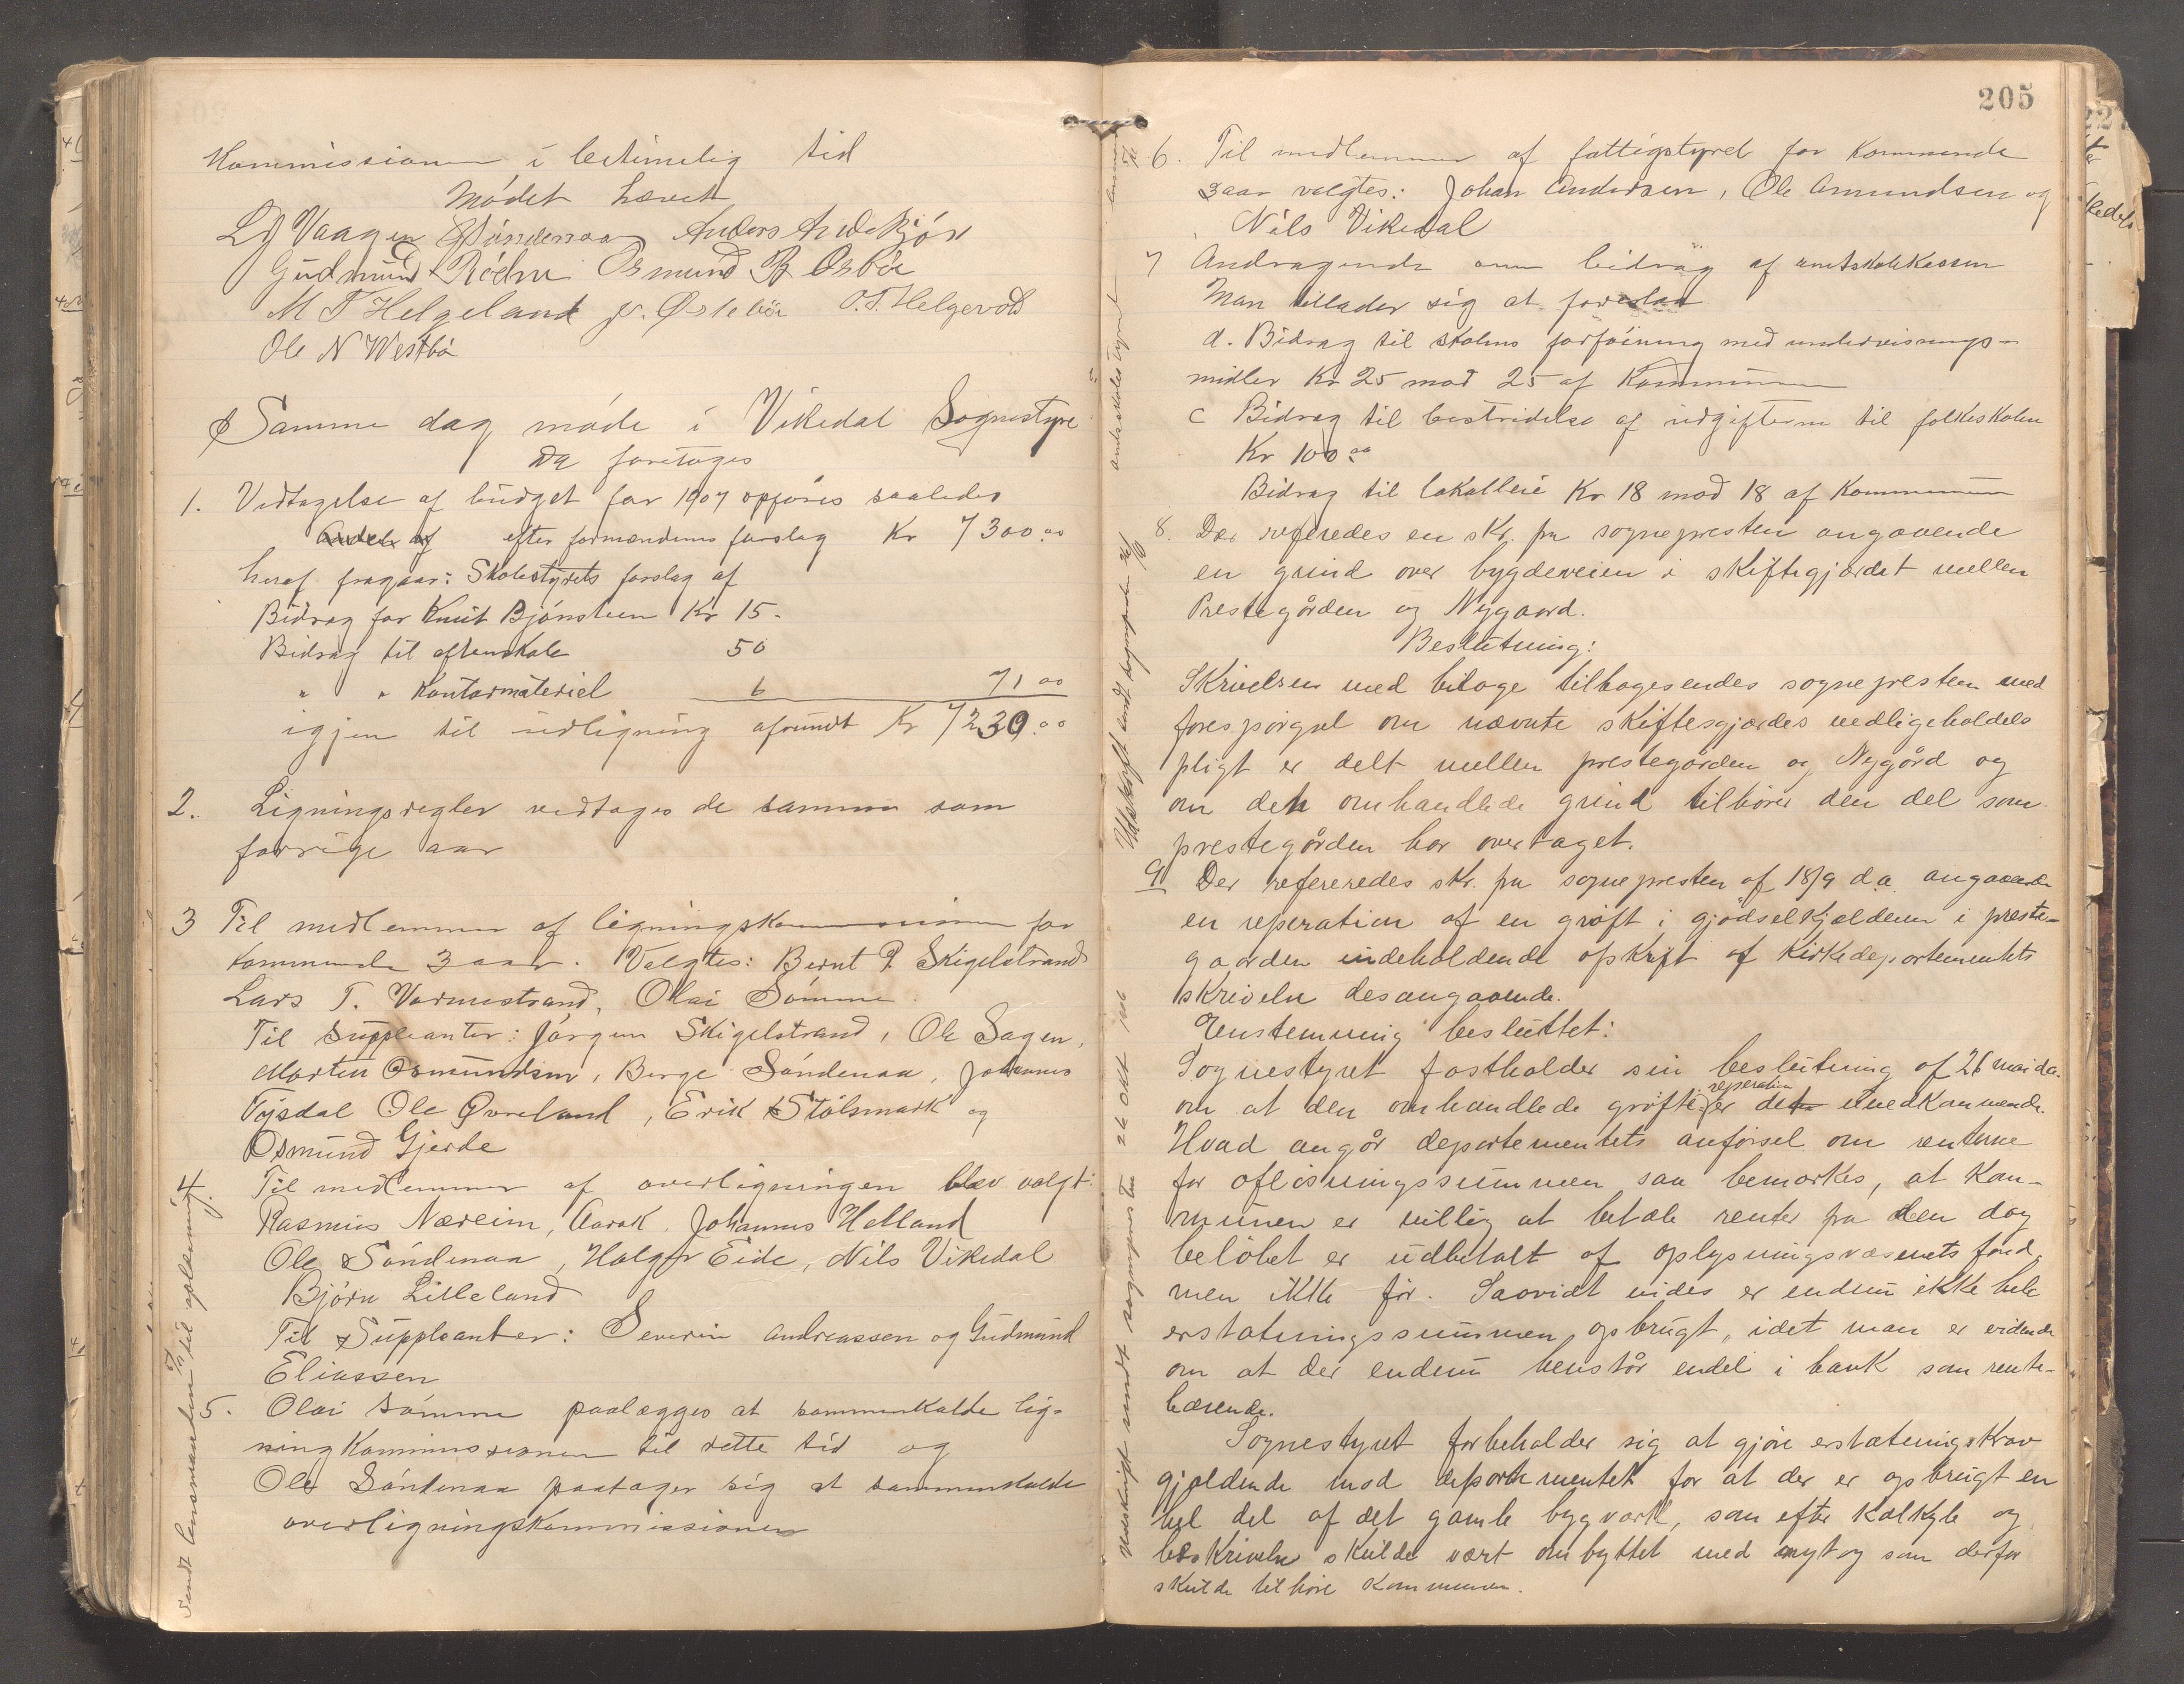 Kommissionen i betimelig tid
Mødet hævet
L J Vaagen O Søndenaa Anders Andskjør
Gudmund Rødne Osmund B Osbør
M T Helgeland O. T. Helgevold
Ole N Westbø
Samme dag møde i Vikedal Sognestyre
Da foretoges
1. Vedtagelse af budget for 1907 opføres saaledes
efter formændenes forslag Kr 7300.00
heraf fragaar: Skolestyrets forslag af
Bidrag for Knut Bjønsteen Kr 15.
Bidrag til aftenskole 50
" " Kontormateriel 6 71 00
igjen til udligning afrundt Kr 7230.00
2. Ligningsregler vedtages de samme som
forrige aar
3 Til medlemmer af ligningskommissionen for
kommende 3 aar. Valgtes: Bernt P. Skigelstrand
Lars T. Varmestrand, Olai Sømme.
Til Suppleanter: Jørgen Skigelstrand, Ole Sagen,
Morten Osmundsen, Børge Søndenaa, Johannes
Tøsdal Ole Øvreland, Erik Stølsmark og
Osmund Gjerde
4. Til medlemmer af overligningen blev valgt:
Rasmus Næreim, Aarak, Johannes Hetland
Ole Søndenaa, Holger Eide, Nils Vikedal
Bjørn Lilleland
Til Suppleanter: Severin Andreassen og Gudmund
Eliassen
5. Olai Sømme paalægges at sammenkalde lig-
ningkommissionen til rette tid og
Ole Søndenaa paatager sig at sammenkalde
overligningskommissionen
Sendt lensmanden til oplysning.
205
6. Til medlemmer af fattigstyret for kommende
3 aar valgtes: Johan Andersen, Ole Amundsen og
Nils Vikedal
7 Andragende om bidrag af amtskolekassen
Man tillader sig at foreslaa
a. Bidrag til skolens forsøining med undervisnings-
midler Kr 25 mod 25 af Kommunen
c Bidrag til bestridelse af udgifterne til folkeskolen
Kr 100 00
Bidrag til lokalleie Kr 18 mod 18 af Kommunen
8. Der refereredes en skr. fra sognepresten angaaende
en grind over bygdeveien i skiftegjærdet mellem
Prestegården og Nygaard.
Beslutning:
Skrivelsen med bilage tilbagesendes sognepresten med
forespørgsel om nævnte skiftesgjærdes vedligeholdels
pligt er delt mellem prestegården og Nygård og
om den omhandlede grind tilhører den del som
prestegården har overtaget.
9 Der refereredes skr. fra sognepresten af 18/9 d.a. angaaende
en reperation af en grøft i gjødselkjælderen i preste-
gaarden indeholdende afskrift af Kirkedepartementets
skrivelse desangaaende.
Enstemmig besluttet:
Sognestyret fastholder sin beslutning af 26 mai d.a.
om at den omhandlede grøfte reperation er uvedkommende.
Hvad angår departementets anførsel om renterne
for afløsningssummen saa bemærkes, at Kom-
munen er villig at betale renter fra den dag
beløbet er udbetalt af oplysningsvæsenets fond,
men ikke før. Saavidt vides er endnu ikke hele
erstatningssummen opbrugt, idet man er vidende
om at der endnu henstår endel i bank som rente-
bærende.
Sognestyret forbeholder sig at gjøre erstatningskrav
gjældende mod departementet for at der er opbrugt en
hel del af det gamle bygværk, som efter Kalkyle og
beskrivelse skulde vært ombyttet med nyt og som derfor
skulde tilhøre Kommunen.
Udskrift sendt sognepresten
Udskrift sendt sognepresten 26 okt 1906
amtsskolestyret